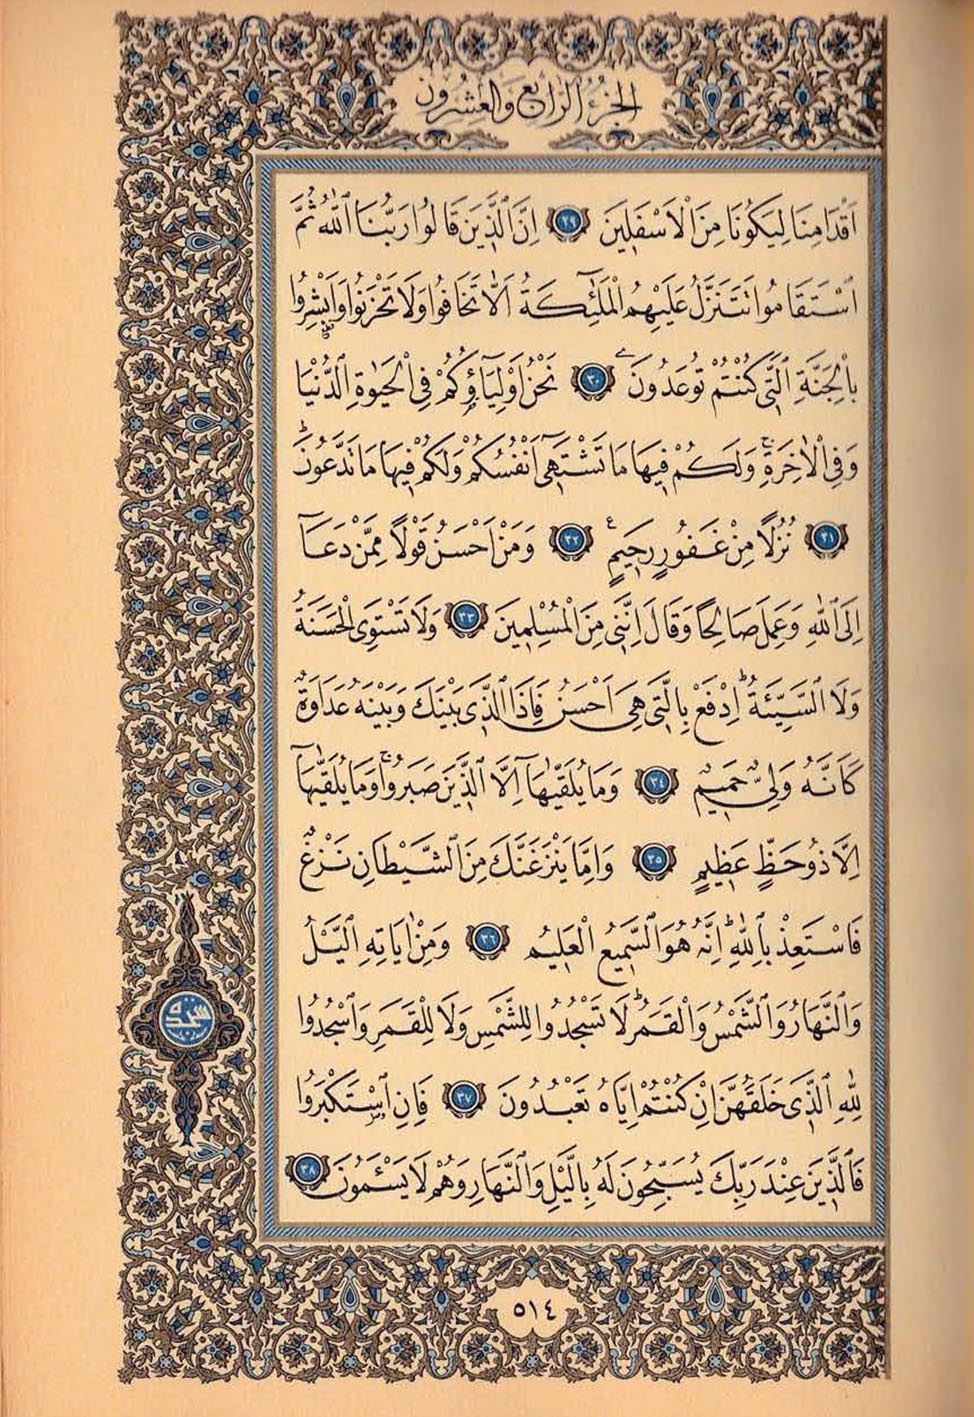 الجزء الرابع والعشرون
اَقْدَامِنَا لِيَكُونَا مِنَ الْاَسْفَلِينَ ﴿٢٩﴾ اِنَّ الَّذِينَ قَالُوا رَبُّنَا اللّٰهُ ثُمَّ
اسْتَقَامُوا تَتَنَزَّلُ عَلَيْهِمُ الْمَلٰٓئِكَةُ اَلَّا تَخَافُوا وَلَا تَحْزَنُوا وَاَبْشِرُوا
بِالْجَنَّةِ الَّتِي كُنْتُمْ تُوعَدُونَ ﴿٣٠﴾ نَحْنُ اَوْلِيَٓاؤُكُمْ فِي الْحَيٰوةِ الدُّنْيَا
وَفِي الْاٰخِرَةِ وَلَكُمْ فِيهَا مَا تَشْتَهِٓي اَنْفُسُكُمْ وَلَكُمْ فِيهَا مَا تَدَّعُونَ
﴿٣١﴾ نُزُلًا مِنْ غَفُورٍ رَحِيمٍ ﴿٣٢﴾ وَمَنْ اَحْسَنُ قَوْلًا مِمَّنْ دَعَٓا
اِلَى اللّٰهِ وَعَمِلَ صَالِحًا وَقَالَ اِنَّنِي مِنَ الْمُسْلِمِينَ ﴿٣٣﴾ وَلَا تَسْتَوِي الْحَسَنَةُ
وَلَا السَّيِّئَةُ اِدْفَعْ بِالَّتِي هِيَ اَحْسَنُ فَاِذَا الَّذِي بَيْنَكَ وَبَيْنَهُ عَدَاوَةٌ
كَاَنَّهُ وَلِيٌّ حَمِيمٌ ﴿٣٤﴾ وَمَا يُلَقّٰيهَٓا اِلَّا الَّذِينَ صَبَرُوا وَمَا يُلَقّٰيهَٓا
اِلَّا ذُو حَظٍّ عَظِيمٍ ﴿٣٥﴾ وَاِمَّا يَنْزَغَنَّكَ مِنَ الشَّيْطَانِ نَزْغٌ
فَاسْتَعِذْ بِاللّٰهِ اِنَّهُ هُوَ السَّمِيعُ الْعَلِيمُ ﴿٣٦﴾ وَمِنْ اٰيَاتِهِ الَّيْلُ
وَالنَّهَارُ وَالشَّمْسُ وَالْقَمَرُ لَا تَسْجُدُوا لِلشَّمْسِ وَلَا لِلْقَمَرِ وَاسْجُدُوا
لِلّٰهِ الَّذِي خَلَقَهُنَّ اِنْ كُنْتُمْ اِيَّاهُ تَعْبُدُونَ ﴿٣٧﴾ فَاِنِ اسْتَكْبَرُوا
فَالَّذِينَ عِنْدَ رَبِّكَ يُسَبِّحُونَ لَهُ بِالَّيْلِ وَالنَّهَارِ وَهُمْ لَا يَسْـَٔمُونَ ﴿٣٨﴾
سجده
٥١٤